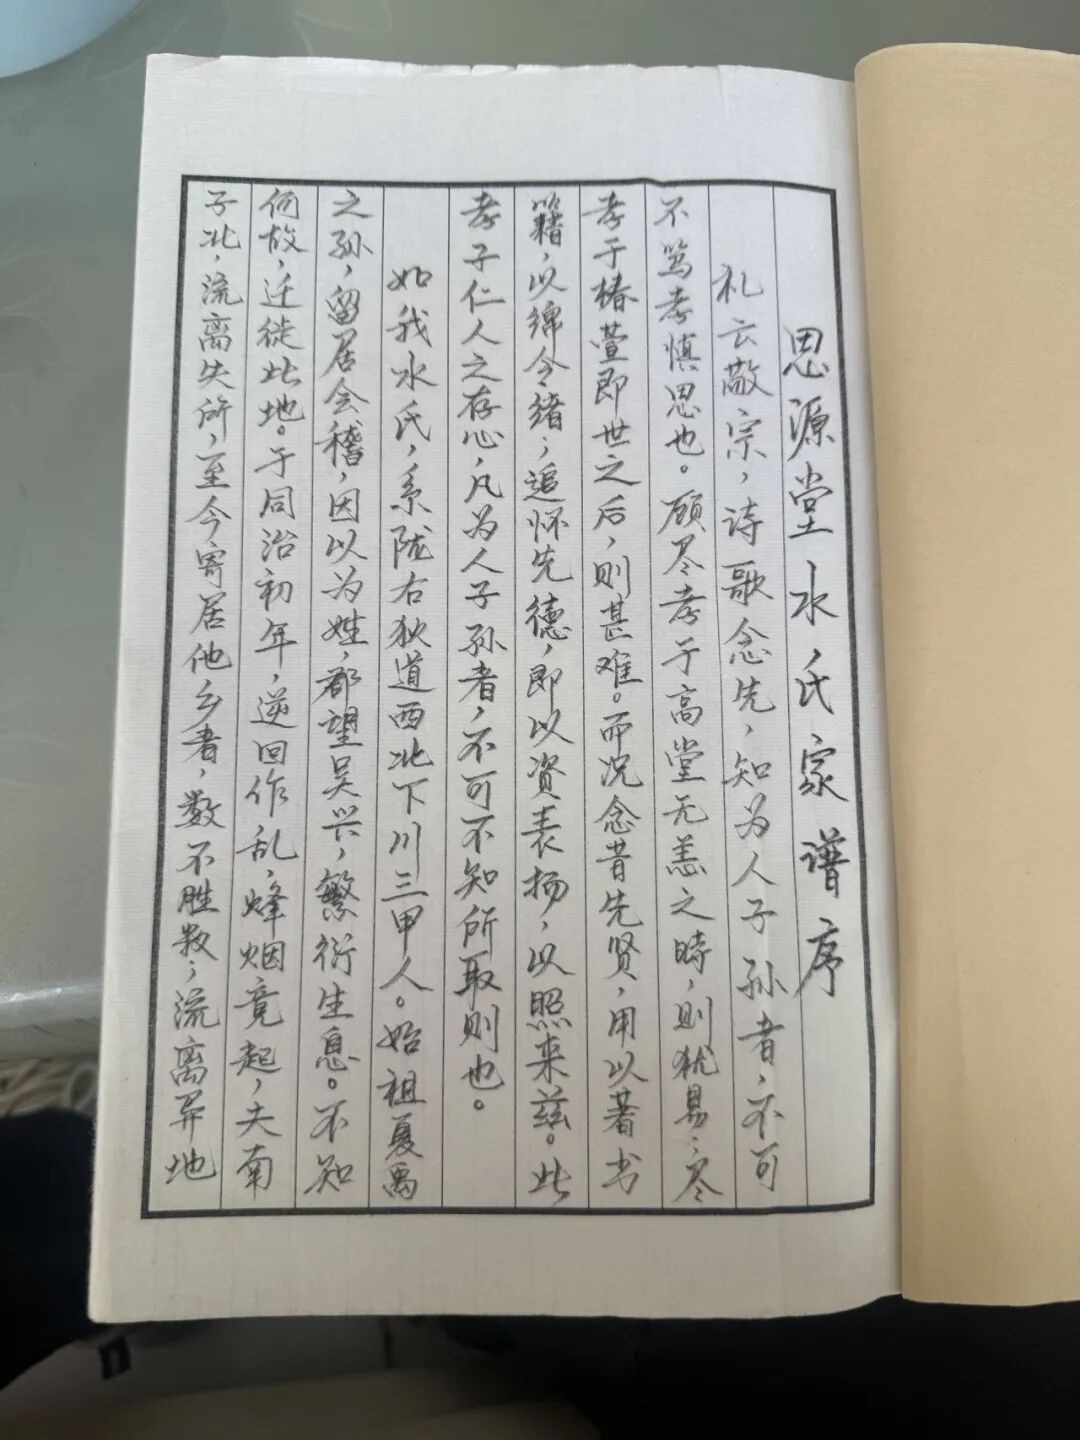 思源堂水氏家谱序
礼云敬宗，诗歌念先，知为人子孙者，不可
不笃孝慎思也。顾尽孝于高堂无恙之時，则犹易，尽
孝于椿萱即世之后，则甚难。而况念昔先贤，用以著书
籍，以绵令绪，追怀先德，即以资表扬，以照来兹。此
孝子仁人之存心，凡为人子孙者，不可不知所取则也。
如我水氏，系陇右狄道西北下川三甲人。始祖夏禹
之孙，留居会稽，因以为姓，郡望吴兴，繁衍生息。不知
何故，迁徙此地。于同治初年，逆回作乱，烽烟竟起，夫南
子北，流离失所，至今寄居他乡者，数不胜数，流离异地